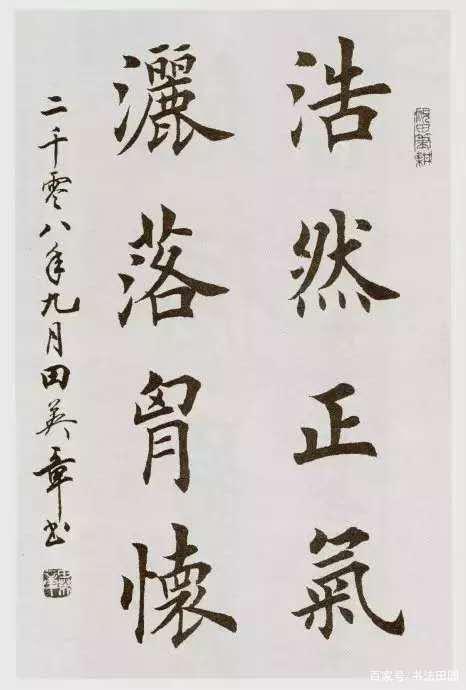 浩然正氣
灑落胷懷
二千零八年九月田英章书
百家号/书法田园